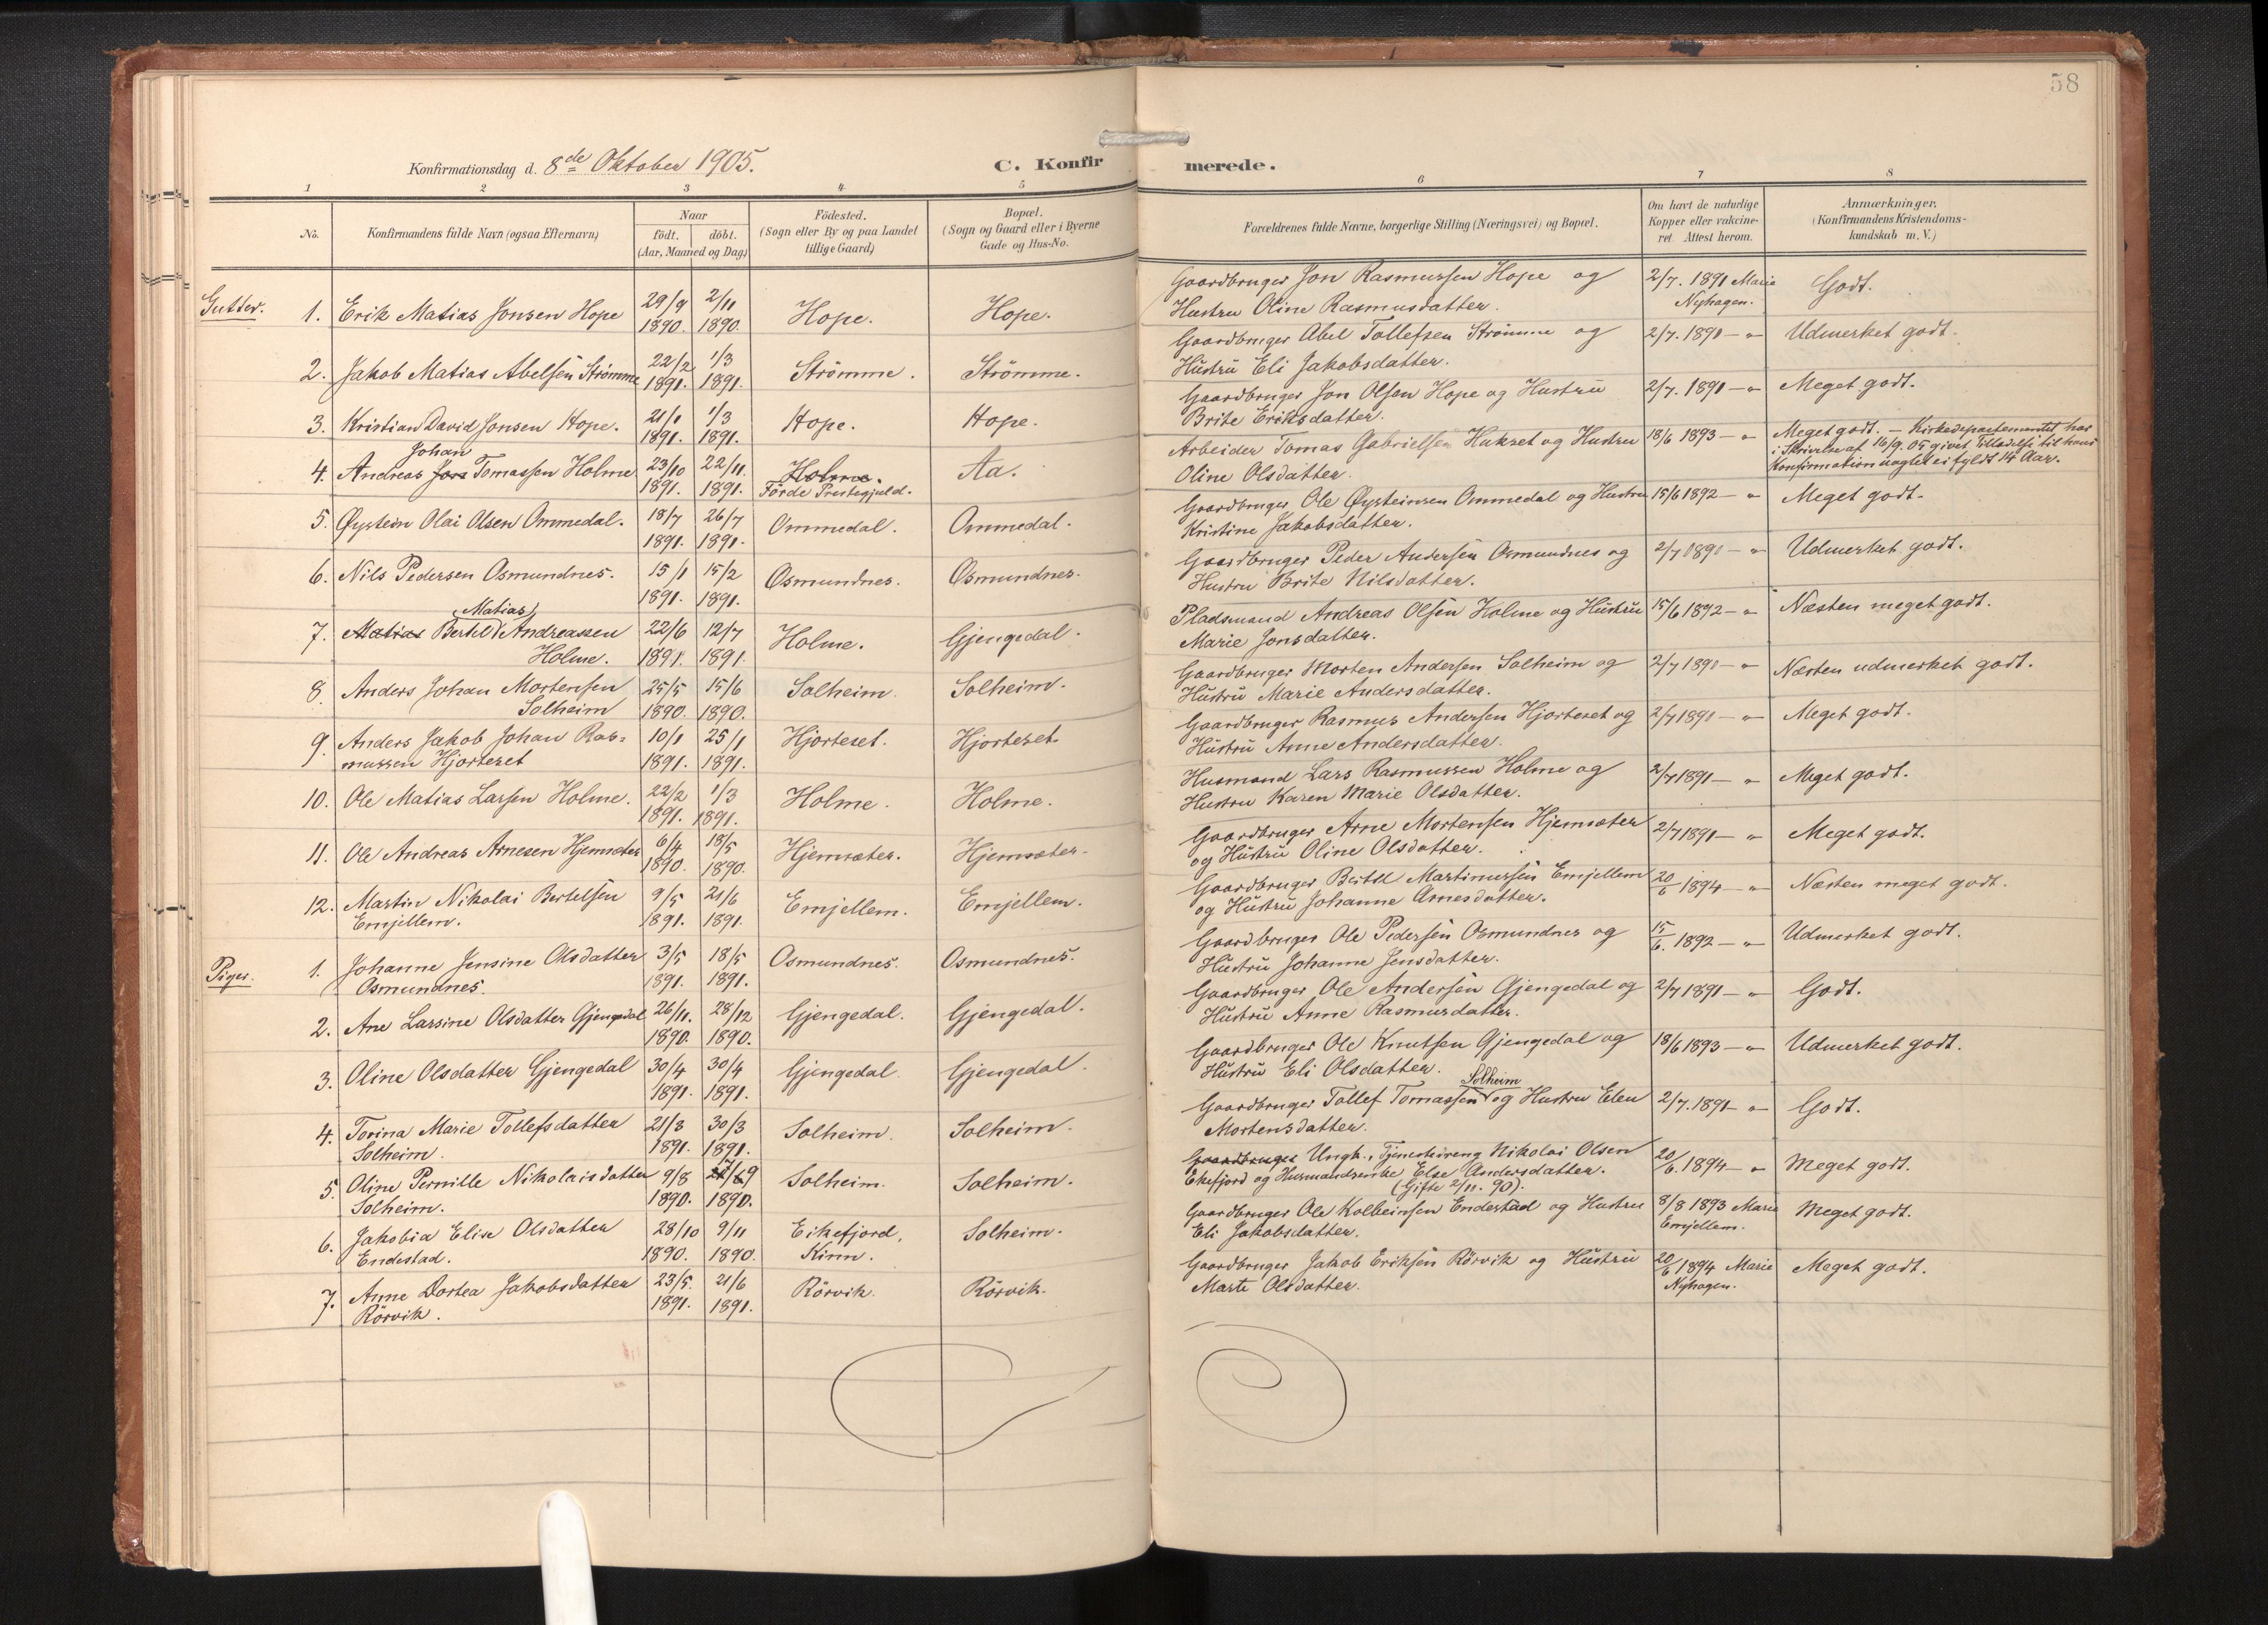 58
Konfirmationsdag d. 8de Oktober 1905.
C. Konfirmerede.
1 2 3 4 5 6 7 8
No.
Konfirmandens fulde Navn (ogsaa Efternavn)
Naar
födt. döbt.
(Aar, Maaned og Dag)
Födested.
(Sogn eller By og paa Landet
tillige Gaard)
Bopæl.
(Sogn og Gaard eller i Byerne
Gade og Hus-No.
Forældrenes fulde Navne, borgerlige Stilling (Næringsvei) og Bopæl.
Om havt de naturlige
Kopper eller vakcine-
ret. Attest herom.
Anmærkninger.
(Konfirmandens Kristendoms-
kundskab m. V.)
Gutter.
1. Erik Matias Jonsen Hope 29/9 1890. 2/11 1890. Hope. Hope.
Gaardbruger Jon Rasmussen Hope og
Hustru Oline Rasmusdatter.
2/7. 1891 Marie
Nyhagen.
Godt.
2. Jakob Matias Abelsen Strömme 22/2 1891. 1/3 1891. Strömme. Strömme.
Gaardbruger Abel Tollefsen Strömme og
Hustru Eli Jakobsdatter.
2/7. 1891 — " Udmerket godt.
3. Kristian David Jonsen Hope. 21/1 1891. 1/3 1891. Hope. Hope.
Gaardbruger Jon Olsen Hope og Hustru
Brite Eriksdatter.
2/7. 1891 — " Meget godt.
Johan
4. Andreas Jors Tomassen Holme 23/10 1891. 22/11. 1891. Holme. Aa.
Förde Prestegjeld.
Arbeider Tomas Gabrielsen Hukset og Hustru
Oline Olsdatter.
18/6 1893 — " Meget godt. — Kirkedepartementet har
i Skrivelse af 16/9. 05 givet Tilladelse til hans
Konfirmation uagtet ei fyldt 14 Aar.
5. Øystein Olai Olsen Ommedal. 18/7 1891. 26/7 1891. Ommedal. Ommedal.
Gaardbruger Ole Øysteinsen Ommedal og Hustru
Kristine Jakobsdatter.
15/6 1892 — " Meget godt.
6. Nils Pedersen Osmundnes. 15/1 1891. 15/2 1891. Osmundnes. Osmundnes.
Gaardbruger Peder Andersen Osmundnes og
Hustru Brite Nilsdatter.
2/7 1891 — " Udmerket godt.
Matias
7. Matias Bertel Andreassen
Holme. 22/6 1891. 12/7 1891. Holme. Gjengedal.
Pladsmand Andreas Olsen Holme og Hustru
Marie Jonsdatter.
15/6 1892 — " Næsten meget godt.
8. Anders Johan Mortensen
Solheim 25/5 1890. 15/6 1890. Solheim. Solheim.
Gaardbruger Morten Andersen Solheim og
Hustru Marie Andersdatter.
2/7 1891 — " Næsten udmerket godt.
9. Anders Jakob Johan Ras-
mussen Hjorteset 10/1 1891. 25/1 1891. Hjorteset. Hjorteset.
Gaardbruger Rasmus Andersen Hjorteset og
Hustru Anne Andersdatter.
2/7 1891 — " Meget godt.
10. Ole Matias Larsen Holme. 22/2 1891. 1/3 1891. Holme. Holme.
Husmand Lars Rasmussen Holme og
Hustru Karen Marie Olsdatter.
2/7 1891 — " Meget godt.
11. Ole Andreas Arnesen Hjemsæter 6/4 1890. 18/5 1890. Hjemsæter. Hjemsæter.
Gaardbruger Arne Mortensen Hjemsæter
og Hustru Oline Olsdatter.
2/7 1891 — " Meget godt.
12. Martin Nikolai Bertelsen
Emjellem. 9/5 1891. 21/6 1891. Emjellem. Emjellem.
Gaardbruger Bertel Martinussen Emjellem
og Hustru Johanne Arnesdatter.
20/6 1894 — " Næsten meget godt.
Piger.
1. Johanne Jensine Olsdatter
Osmundnes. 3/5 1891. 18/5 1891. Osmundnes. Osmundnes.
Gaardbruger Ole Pedersen Osmundnes og
Hustru Johanne Jensdatter.
15/6. 1892 — " Udmerket godt.
2. Ane Larsine Olsdatter Gjengedal 26/11. 1890. 28/12 1890. Gjengedal. Gjengedal.
Gaardbruger Ole Andersen Gjengedal og
Hustru Anne Rasmusdatter.
2/7 1891 — " Godt.
3. Oline Olsdatter Gjengedal 30/4 1891. 30/4 1891. Gjengedal. Gjengedal.
Gaardbruger Ole Knutsen Gjengedal og
Hustru Eli Olsdatter.
18/6 1893 — " Udmerket godt.
4. Torina Marie Tollefsdatter
Solheim. 21/3 1891. 30/3 1891. Solheim. Solheim.
Solheim
Gaardbruger Tollef Tomassen og Hustru Elen
Mortensdatter.
2/7. 1891 — " Godt.
5. Oline Pernille Nikolaisdatter
Solheim. 9/8 1890. 7/9 1890. Solheim. Solheim.
Gaardbruger Ungk., Tjenestedreng Nikolai Olsen
Ekefjord og Husmandsenke Else Andersdatter.
(Gifte 2/11. 90).
20/6. 1894 — " Meget godt.
6. Jakobia Elise Olsdatter
Endestad. 28/10 1890. 9/11 1890. Eikefjord,
Kinn. Solheim.
Gaardbruger Ole Kolbeinsen Endestad og Hustru
Eli Jakobsdatter.
8/8 1893 Marie
Emjellem. Meget godt.
7. Anne Dortea Jakobsdatter
Rörvik. 23/5. 1891. 21/6 1891. Rörvik. Rörvik.
Gaardbruger Jakob Eriksen Rörvik og Hustru
Marte Olsdatter.
20/6 1894 Marie
Nyhagen. Meget godt.